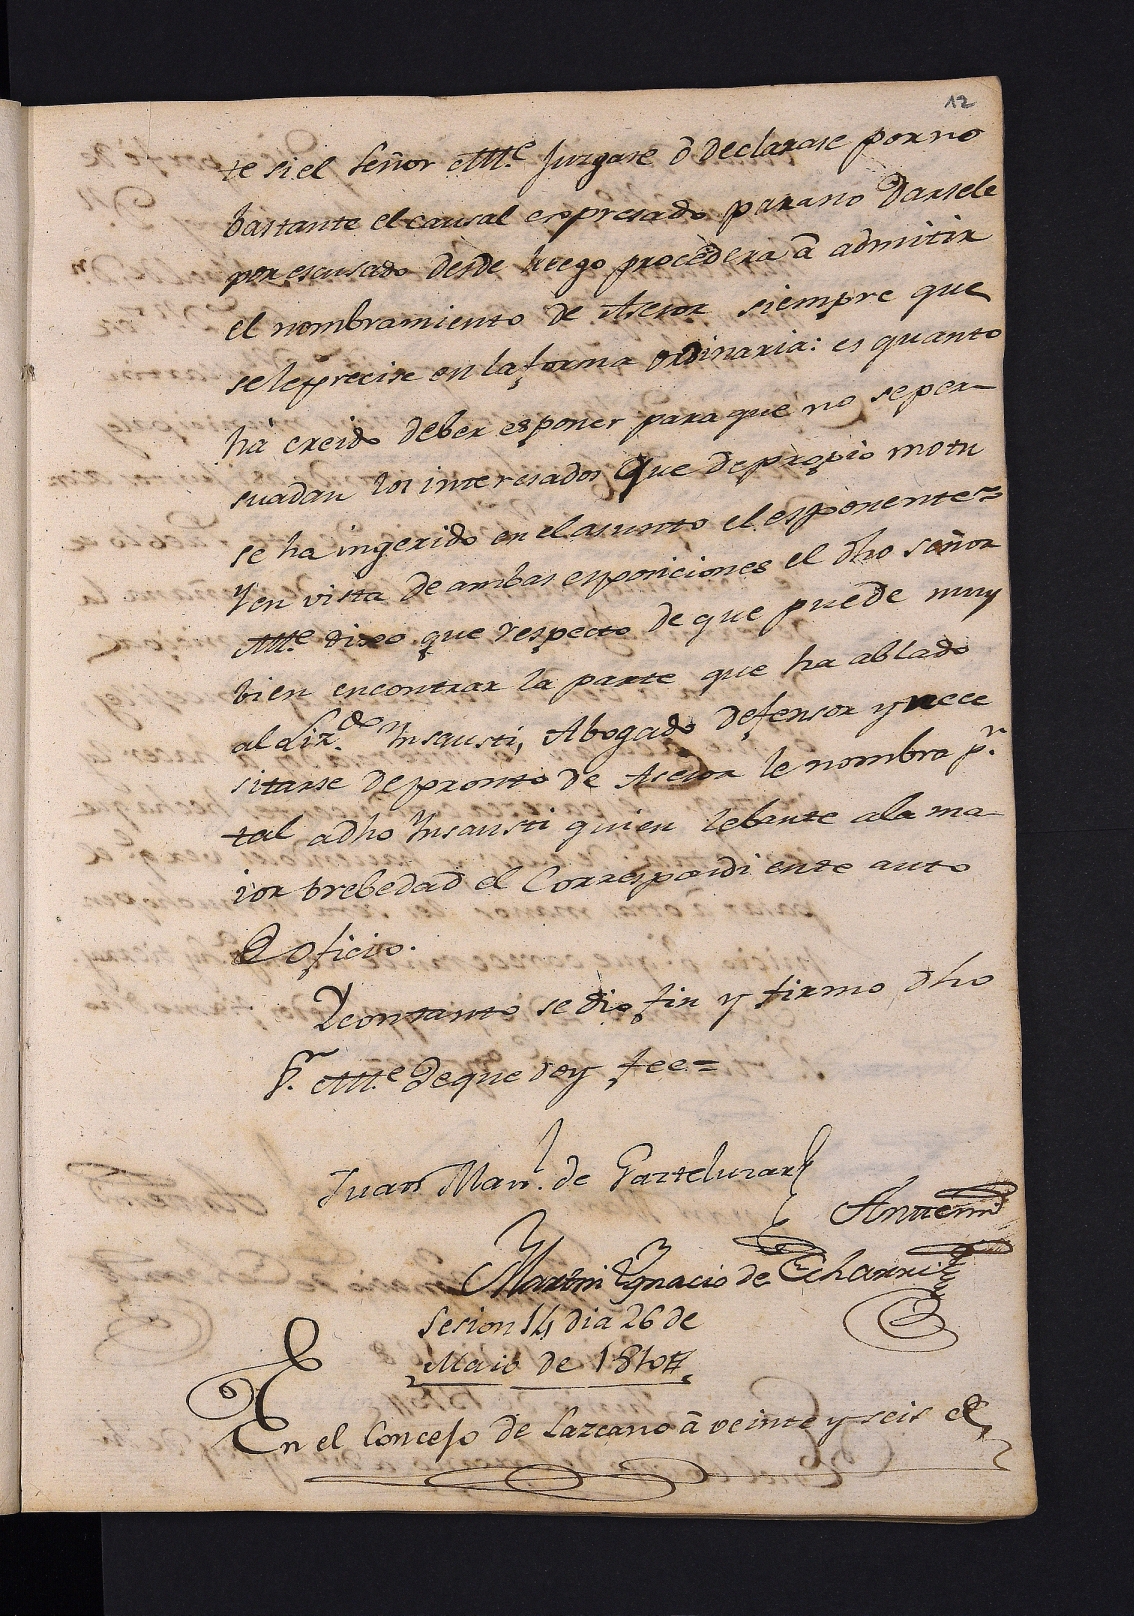 12
te si el Señor Alt.e Juzgare ò declarase por no
bastante el causal espresado para no Darsele
por escusado desde luego procederà â admitir
el nombramiento de Asesor siempre que
se le precise en la forma ordinaria: es quanto
hà creido deber esponer para que no se per-
suadan los interesados que de propio motu
se ha ingerido en el asunto el esponente=
Y en vista de ambas esposiciones el dho Señor
Alt.e dixo que respecto de que puede muy
bien encontrar la parte que ha ablado
al Liz.do Insausti, Abogado defensor y nece
sitarse de pronto de Asesor le nombra p.r
tal a dho Insausti quien lebante a la ma-
ior brebedad el Correspondiente auto
D oficio.
D con tanto se dio fin y firmo dho
S.r Alt.e de que doy fee=
Juan Man.l de Garteluzar
Ante mi
Martin Ygnacio de Echarri
Sesion 14 dia 26 de
Maio de 1810
En el Concejo de Lazcano â veinte y seis de